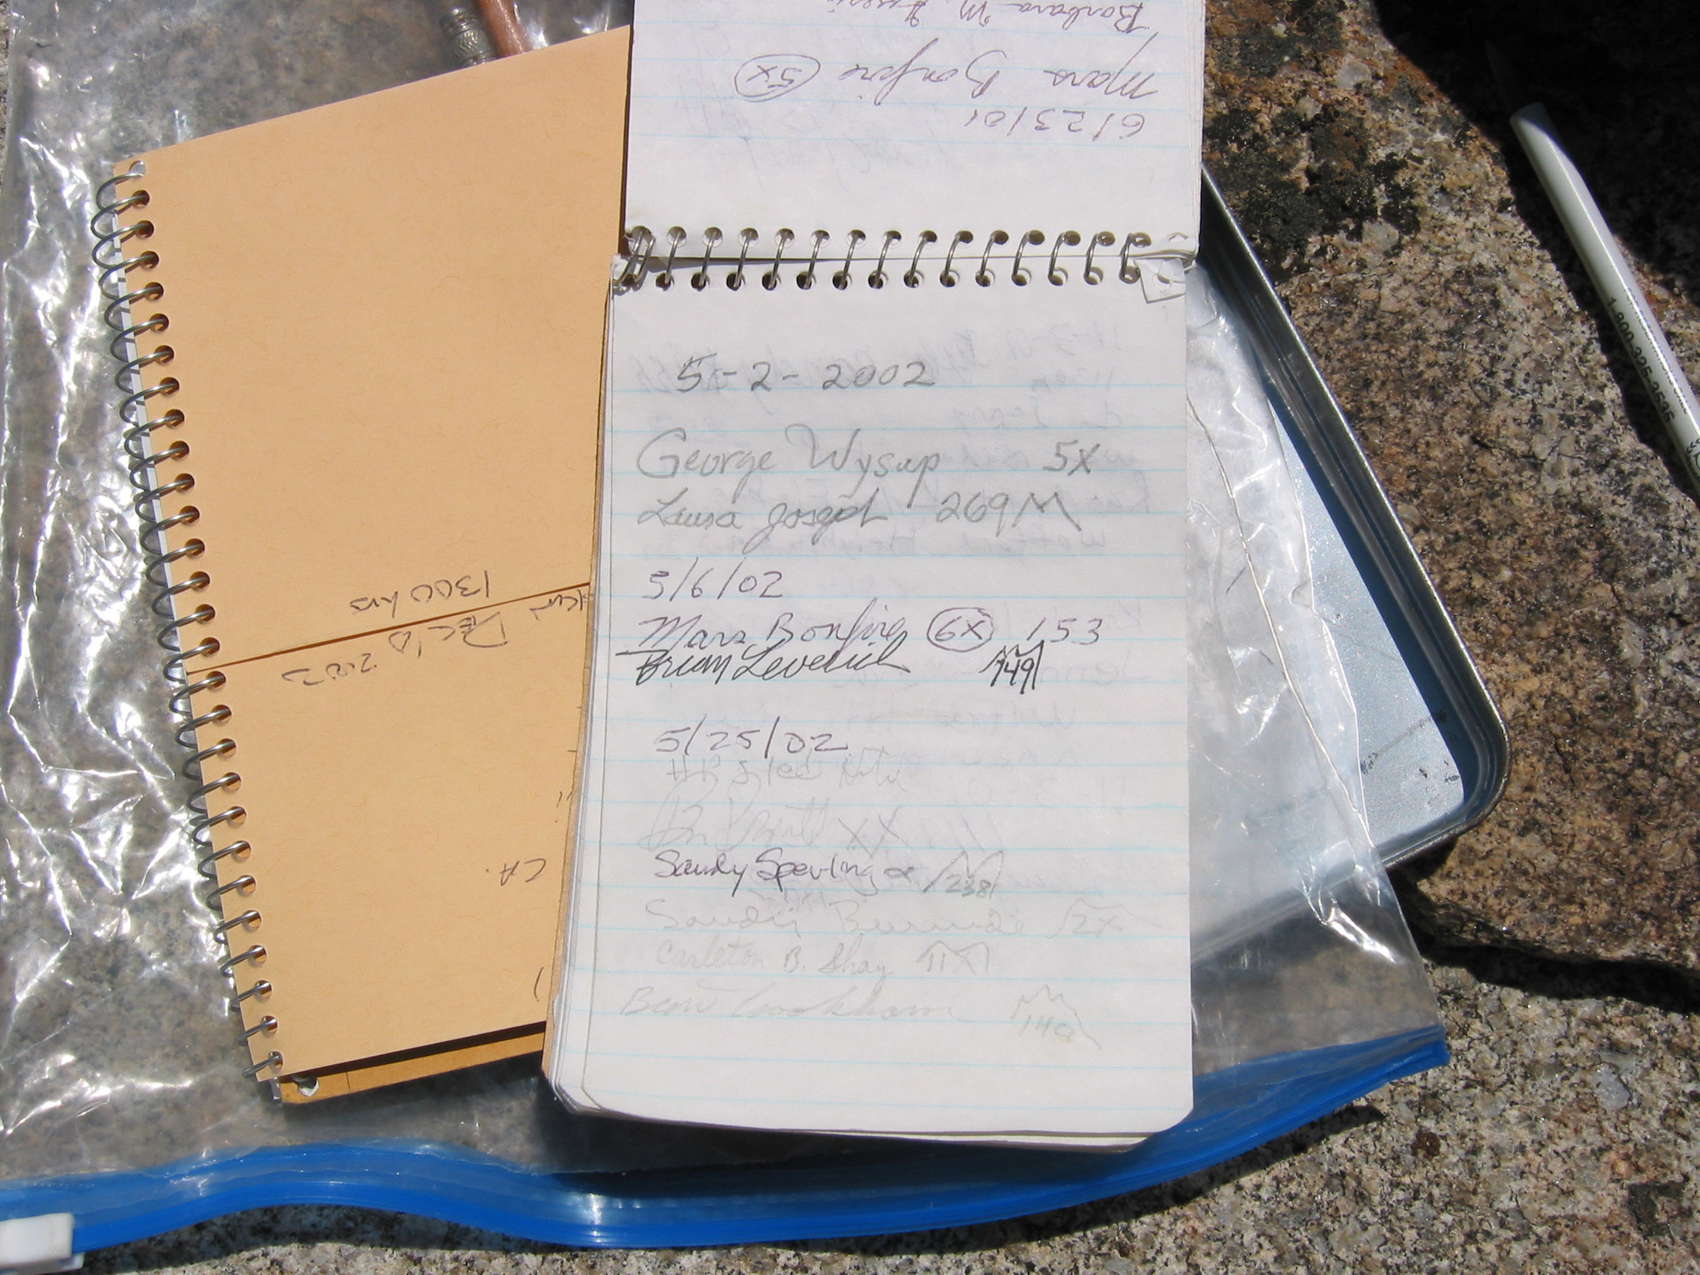 Barbara M.
Mars Bonfire 5X
6/23/01
5-2-2002
George Wysup 5X
Laura Joseph 269
5/6/02
Mars Bonfire 6X 153
Brian Leverich 149
5/25/02
XX
Sandy Sperling 238
2X
Carleton B. Shay 11X
1300 hrs
Dec 10 2003
CA.
1-800-395-3535